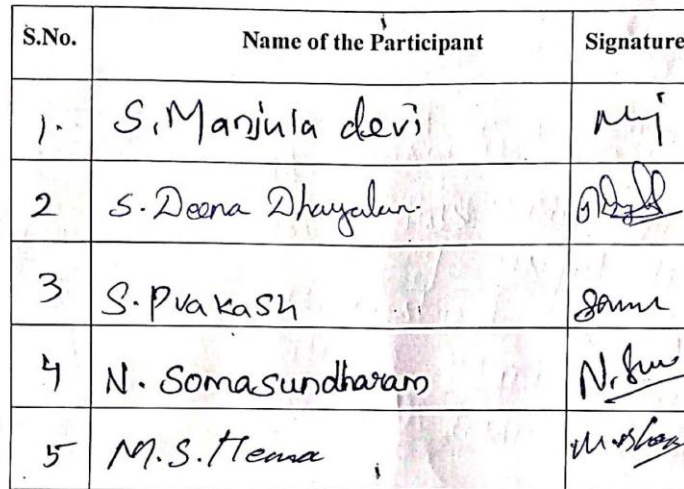 S.No. Name of the Participant Signature
1. S. Manjula devi
2 S. Deena Dhayalan
3 S. Prakash
4 N. Somasundharam
5 M.S. Hema